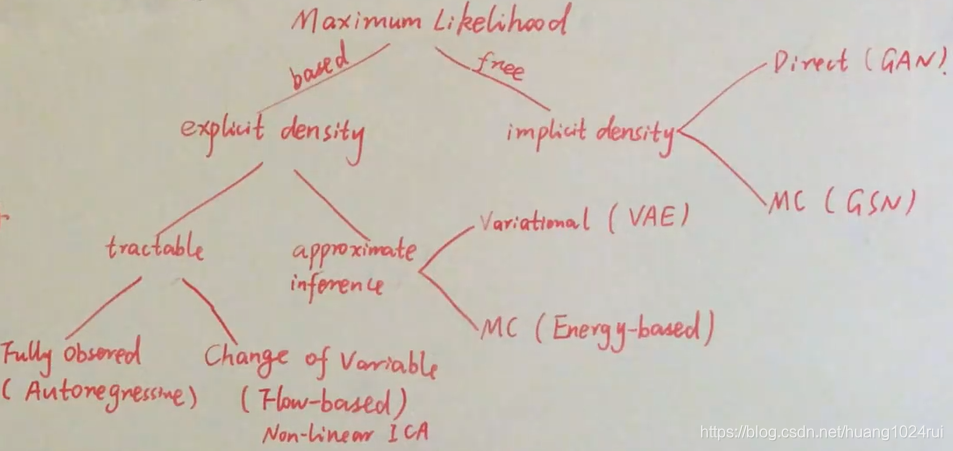 Maximum Likelihood
based
free
Direct (GAN)
explicit density
implicit density
MC (GSN)
Variational (VAE)
tractable
approximate
inference
MC (Energy-based)
Fully Obsered
(Autoregressive)
Change of Variable
(Flow-based)
Non-linear ICA
https://blog.csdn.net/huang1024rui